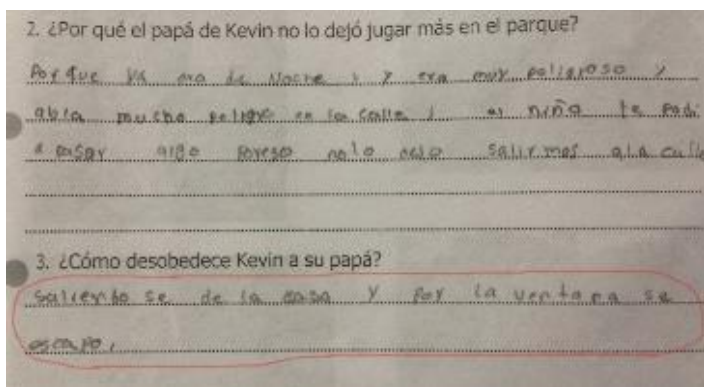 2. ¿Por qué el papá de Kevin no lo dejó jugar más en el parque?
Porque ya era de noche y era muy peligroso y
abia mucho peligro en la calle
a pasar algo poreso no lo salir mas ala calle
3. ¿Cómo desobedece Kevin a su papá?
Saliendo se de la casa y por la ventana se
escapo.